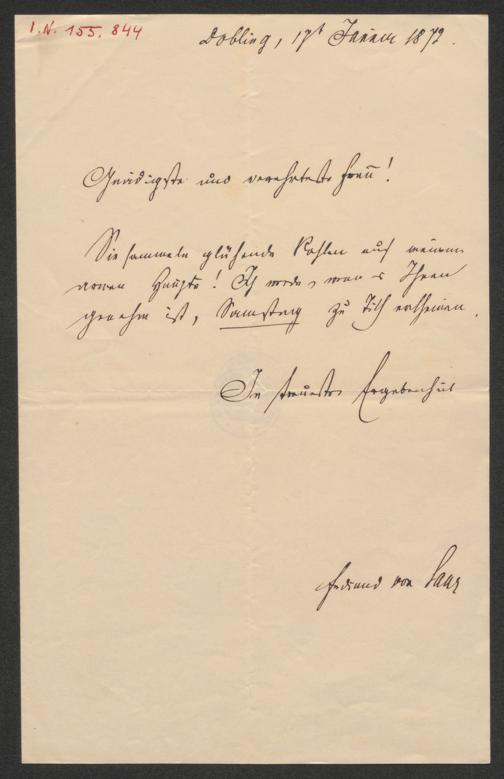 I.N. 155.844
Döbling, 17t Januar 1872.
Gnädigste und verehrteste Frau!
Sie sammeln glühende Kohlen auf meinem
armen Haupte! Ich werde, wenn es Ihnen
genehm ist, Samstag zu Tisch erscheinen.
In treuester Ergebenheit
Ferdinand von Saar